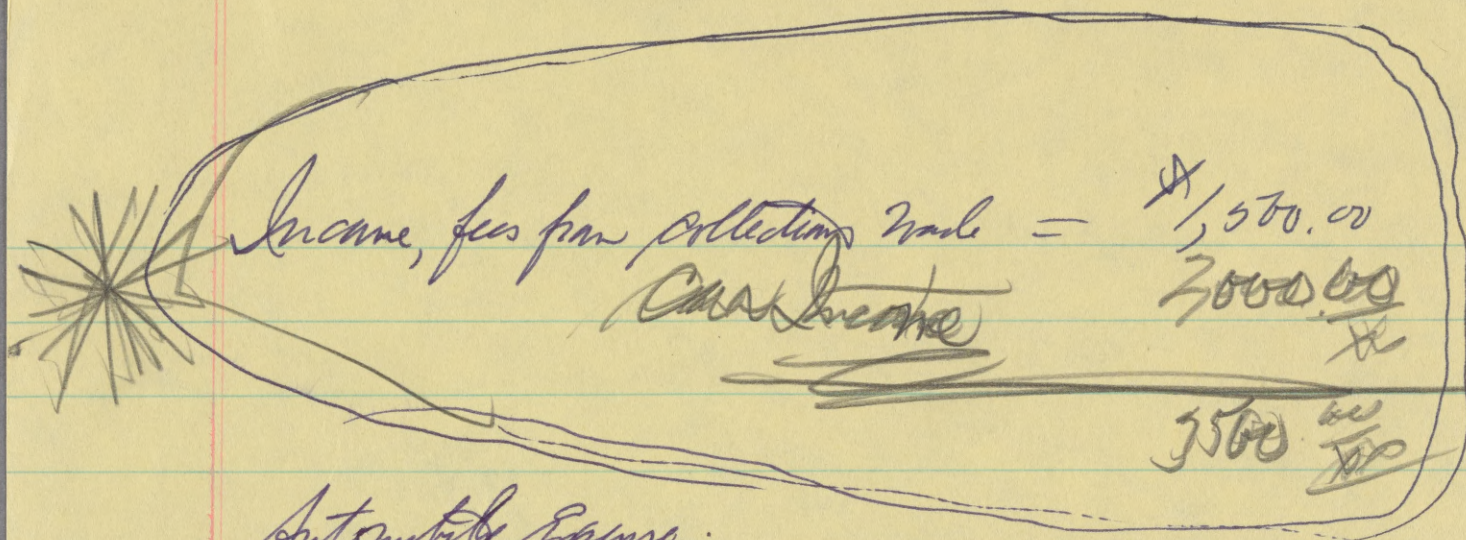 Income, fees from collections made = $1,500.00
Income 2000.00
xx
3500 00
xx
Automobile Expense.